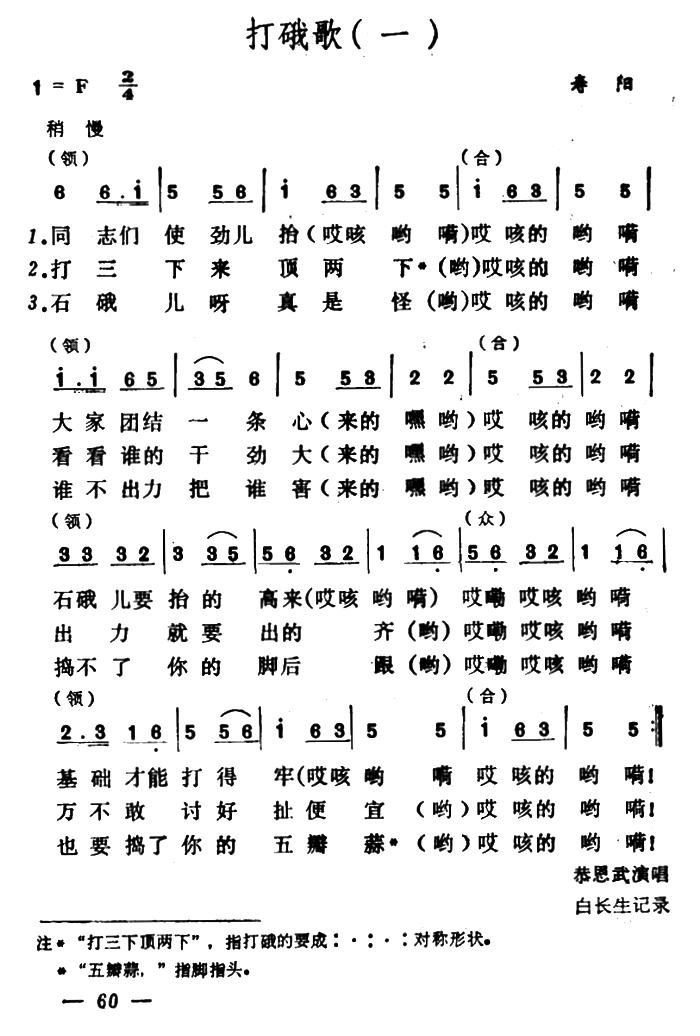 打硪歌（一）
1 = F 2/4 寿 阳
稍 慢
（领） （合）
6 6.i | 5 5 6 | i 6 3 | 5 5 | i 6 3 | 5 5 |
1.同 志们 使 劲儿 抬（哎咳 哟 嗬）哎 咳的 哟 嗬
2.打 三 下 来 顶 两 下*（哟）哎 咳的 哟 嗬
3.石 硪 儿 呀 真 是 怪（哟）哎 咳的 哟 嗬
（领） （合）
i.i 6 5 | 3 5 6 | 5 5 3 | 2 2 | 5 5 3 | 2 2 |
大 家 团结 一 条 心（来的 嘿 哟）哎 咳的 哟 嗬
看 看 谁的 干 劲 大（来的 嘿 哟）哎 咳的 哟 嗬
谁 不 出力 把 谁 害（来的 嘿 哟）哎 咳的 哟 嗬
（领） （众）
3 3 3 2 | 3 3 5 | 5 6 3 2 | 1 1 6 | 5 6 3 2 | 1 1 6 |
石硪 儿要 抬 的 高来（哎咳 哟 嗬） 哎嘞 哎咳 哟 嗬
出 力 就 要 出的 齐（哟）哎嘞 哎咳 哟 嗬
捣不 了 你 的 脚后 跟（哟）哎嘞 哎咳 哟 嗬
（领） （合）
2.3 1 6 | 5 5 6 | i 6 3 | 5 5 | i 6 3 | 5 5 :‖
基 础 才能 打 得 牢（哎咳 哟 嗬 哎 咳的 哟 嗬！
万 不 敢 讨 好 扯 便 宜（哟）哎 咳的 哟 嗬！
也 要 捣了 你 的 五 瓣 蒜*（哟）哎 咳的 哟 嗬！
恭恩武演唱
白长生记录
注*“打三下顶两下”，指打硪的要成：·：·：对称形状。
*“五瓣蒜，”指脚指头。
— 60 —